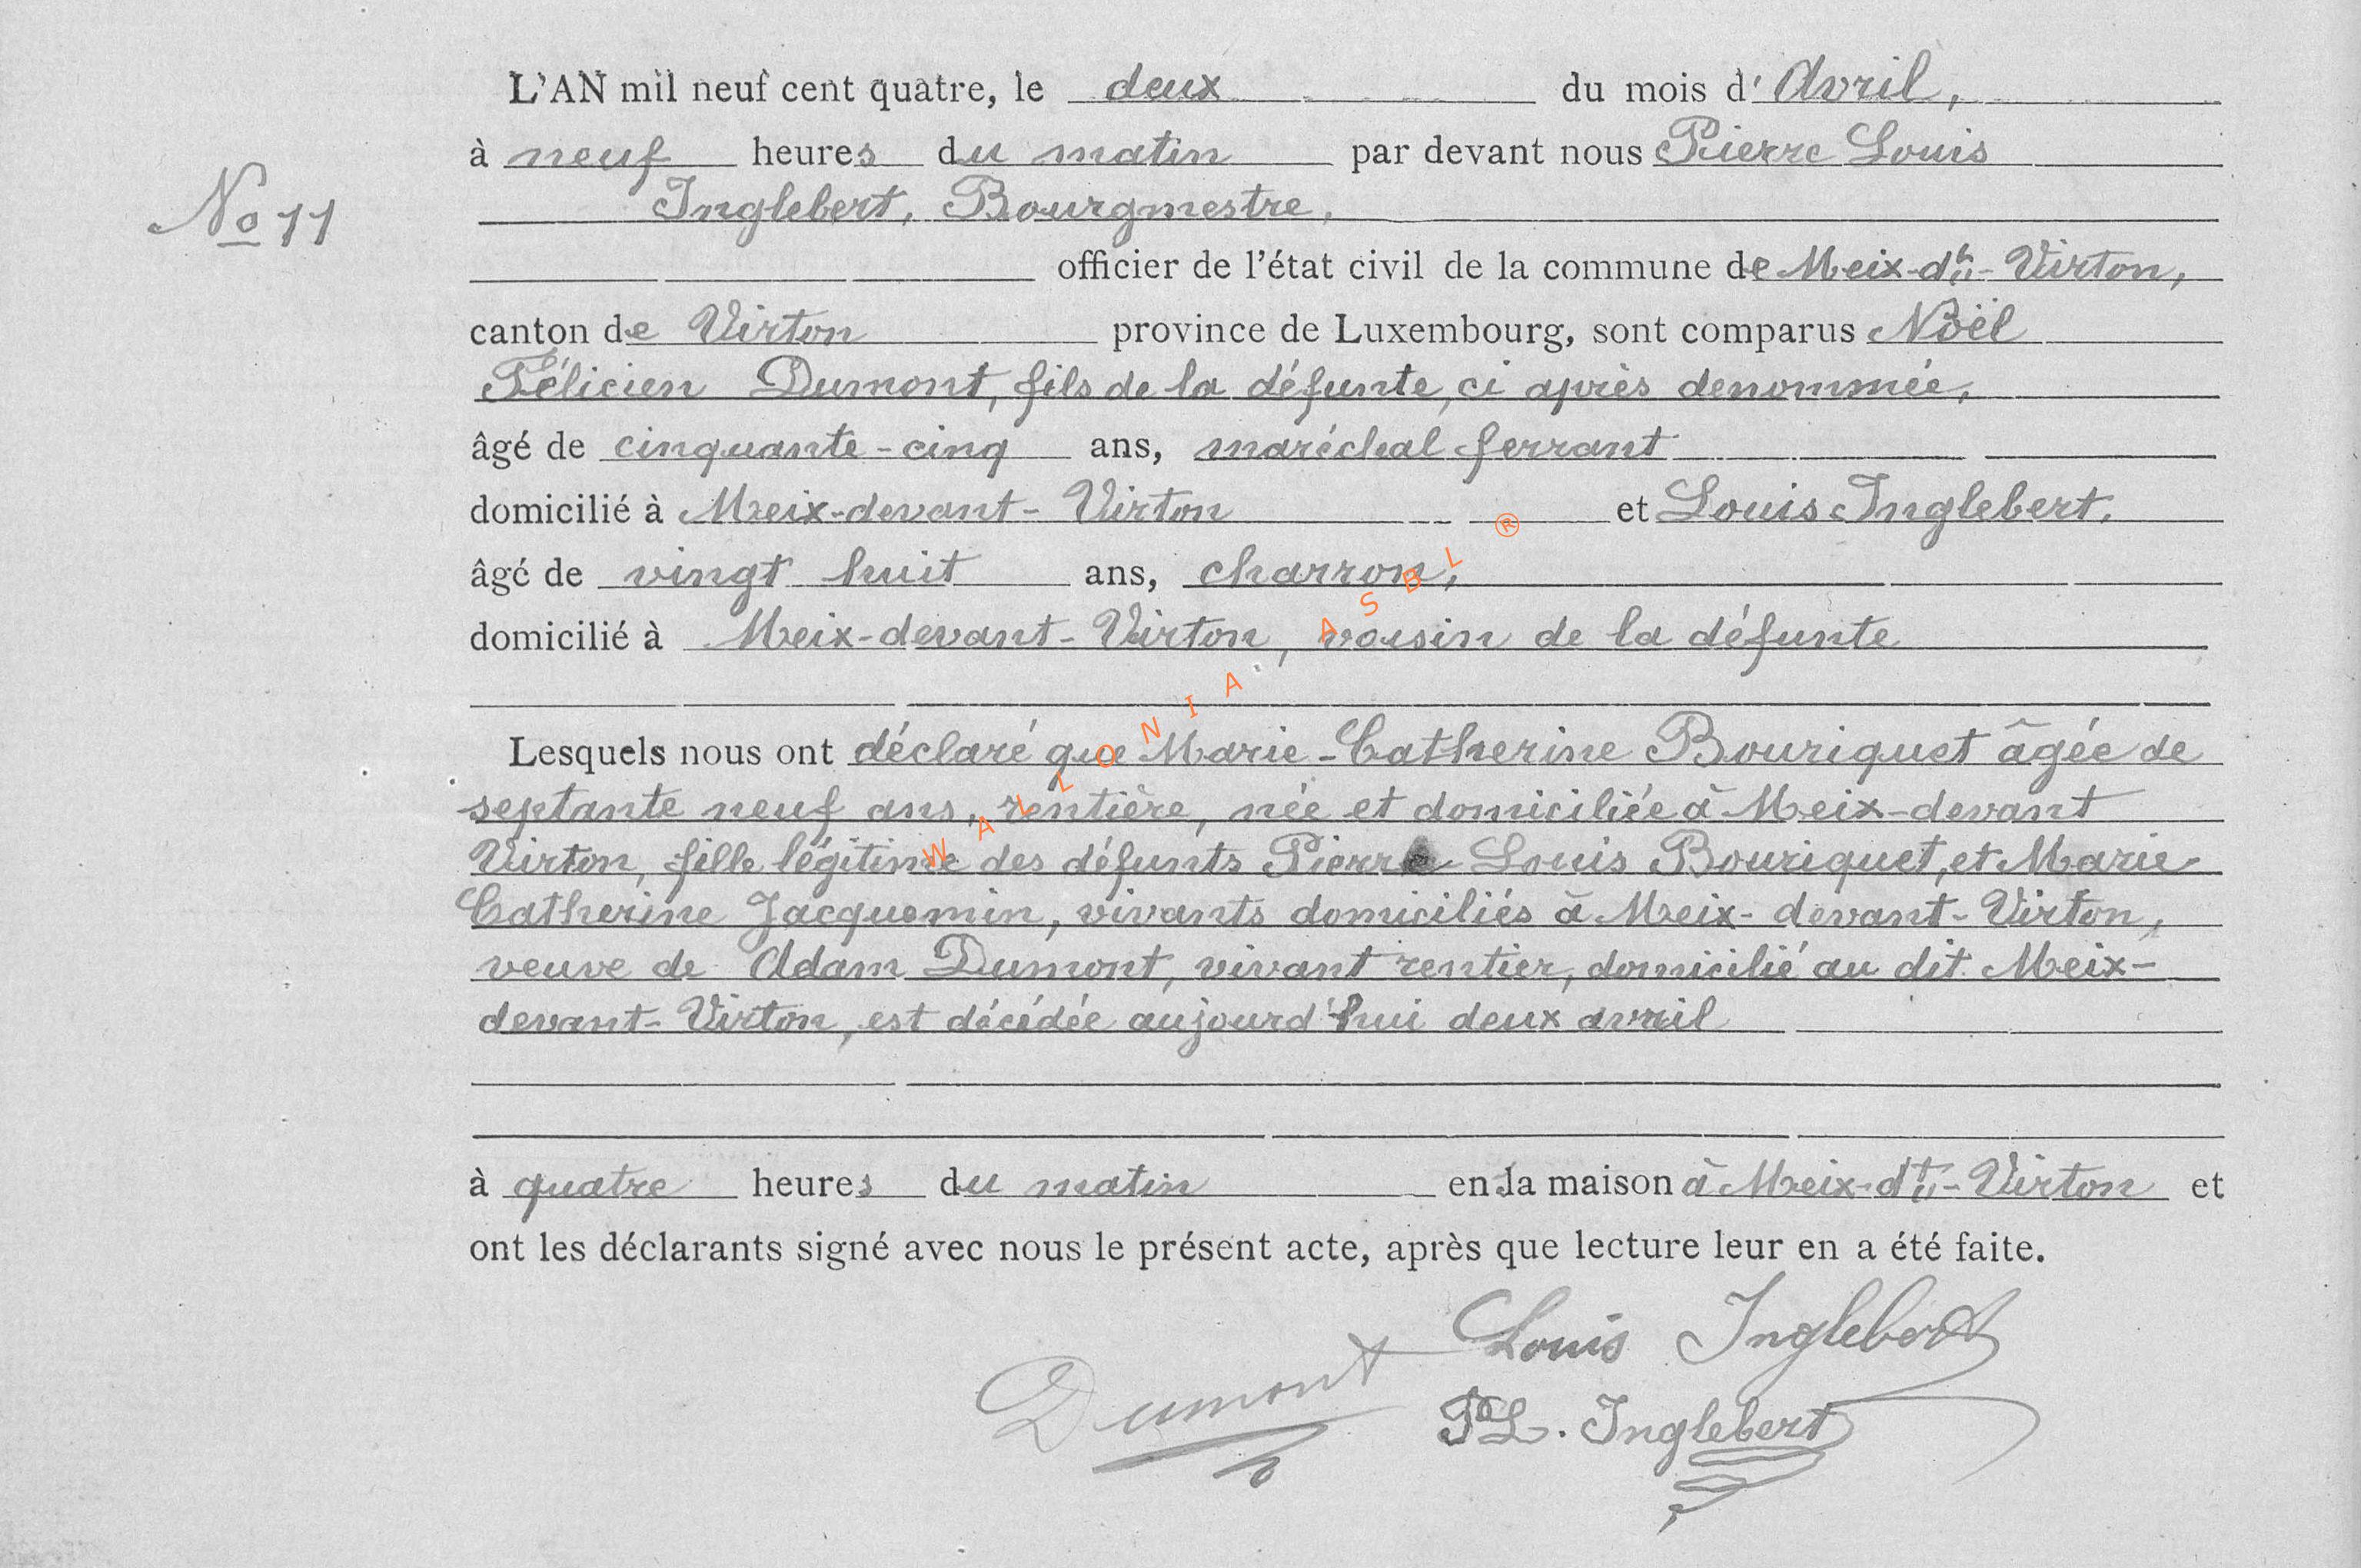 L'AN mil neuf cent quatre, le deux du mois d'Avril,
à neuf heures du matin par devant nous Pierre Louis
Nº 11
Inglebert, Bourgmestre,
officier de l'état civil de la commune de Meix-dt-Virton,
canton de Virton province de Luxembourg, sont comparus Noël
Félicien Dumont, fils de la défunte, ci après denommée,
âgé de cinquante-cinq ans, maréchal ferrant
domicilié à Meix-devant-Virton et Louis Inglebert,
âgé de vingt huit ans, charron,
domicilié à Meix-devant-Virton, voisin de la défunte
Lesquels nous ont déclaré que Marie-Catherine Bouriquet âgée de
septante neuf ans, rentière, née et domiciliée à Meix-devant
Virton, fille légitime des défunts Pierre Louis Bouriquet, et Marie
Catherine Jacquemin, vivants domiciliés à Meix-devant-Virton,
veuve de Adam Dumont, vivant rentier, domicilié au dit Meix-
devant-Virton, est décédée aujourd'hui deux avril
à quatre heures du matin en la maison à Meix-dt-Virton et
ont les déclarants signé avec nous le présent acte, après que lecture leur en a été faite.
Louis Inglebert
Dumont
PL. Inglebert
WALLONIA ASBL ®